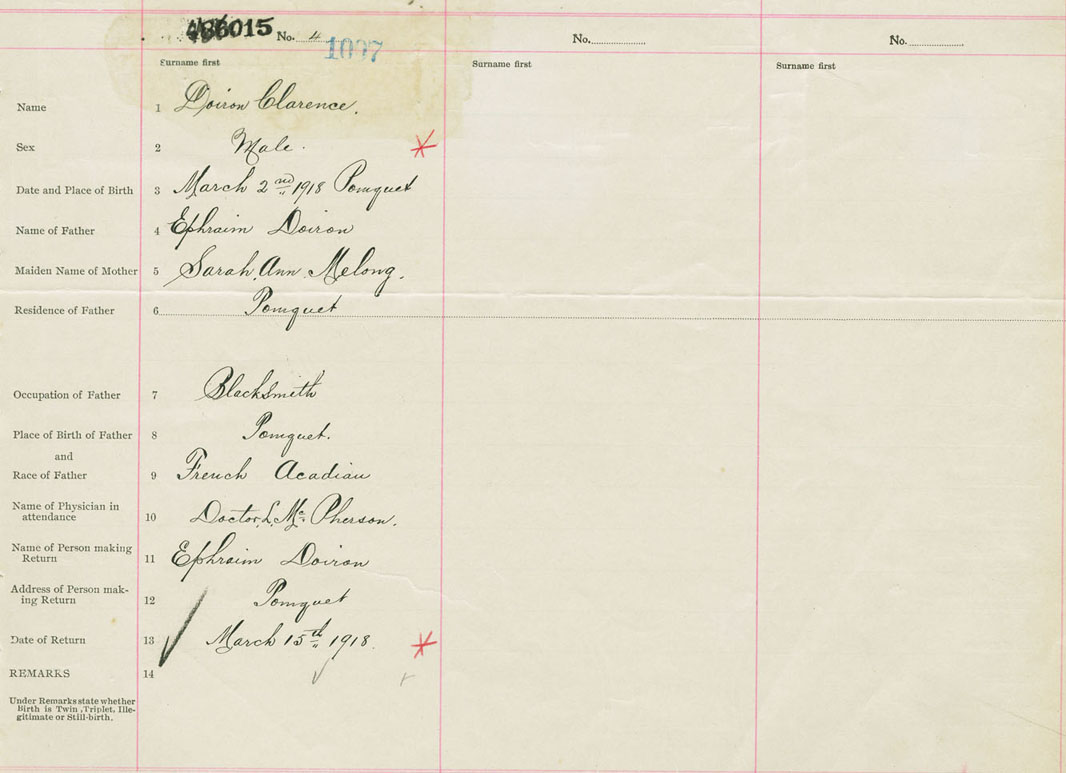 No. 4 No. No.
Surname first Surname first Surname first
Name 1 Doiron Clarence.
Sex 2 Male.
Date and Place of Birth 3 March 2nd 1918 Pomquet
Name of Father 4 Ephraim Doiron
Maiden Name of Mother 5 Sarah Ann Melong.
Residence of Father 6 Pomquet
Occupation of Father 7 Blacksmith
Place of Birth of Father 8 Pomquet.
and
Race of Father 9 French Acadian
Name of Physician in
attendance 10 Doctor L. Mc Pherson.
Name of Person making
Return 11 Ephraim Doiron
Address of Person mak-
ing Return 12 Pomquet
Date of Return 13 March 15th 1918.
REMARKS 14
Under Remarks state whether
Birth is Twin, Triplet, Ille-
gitimate or Still-birth.